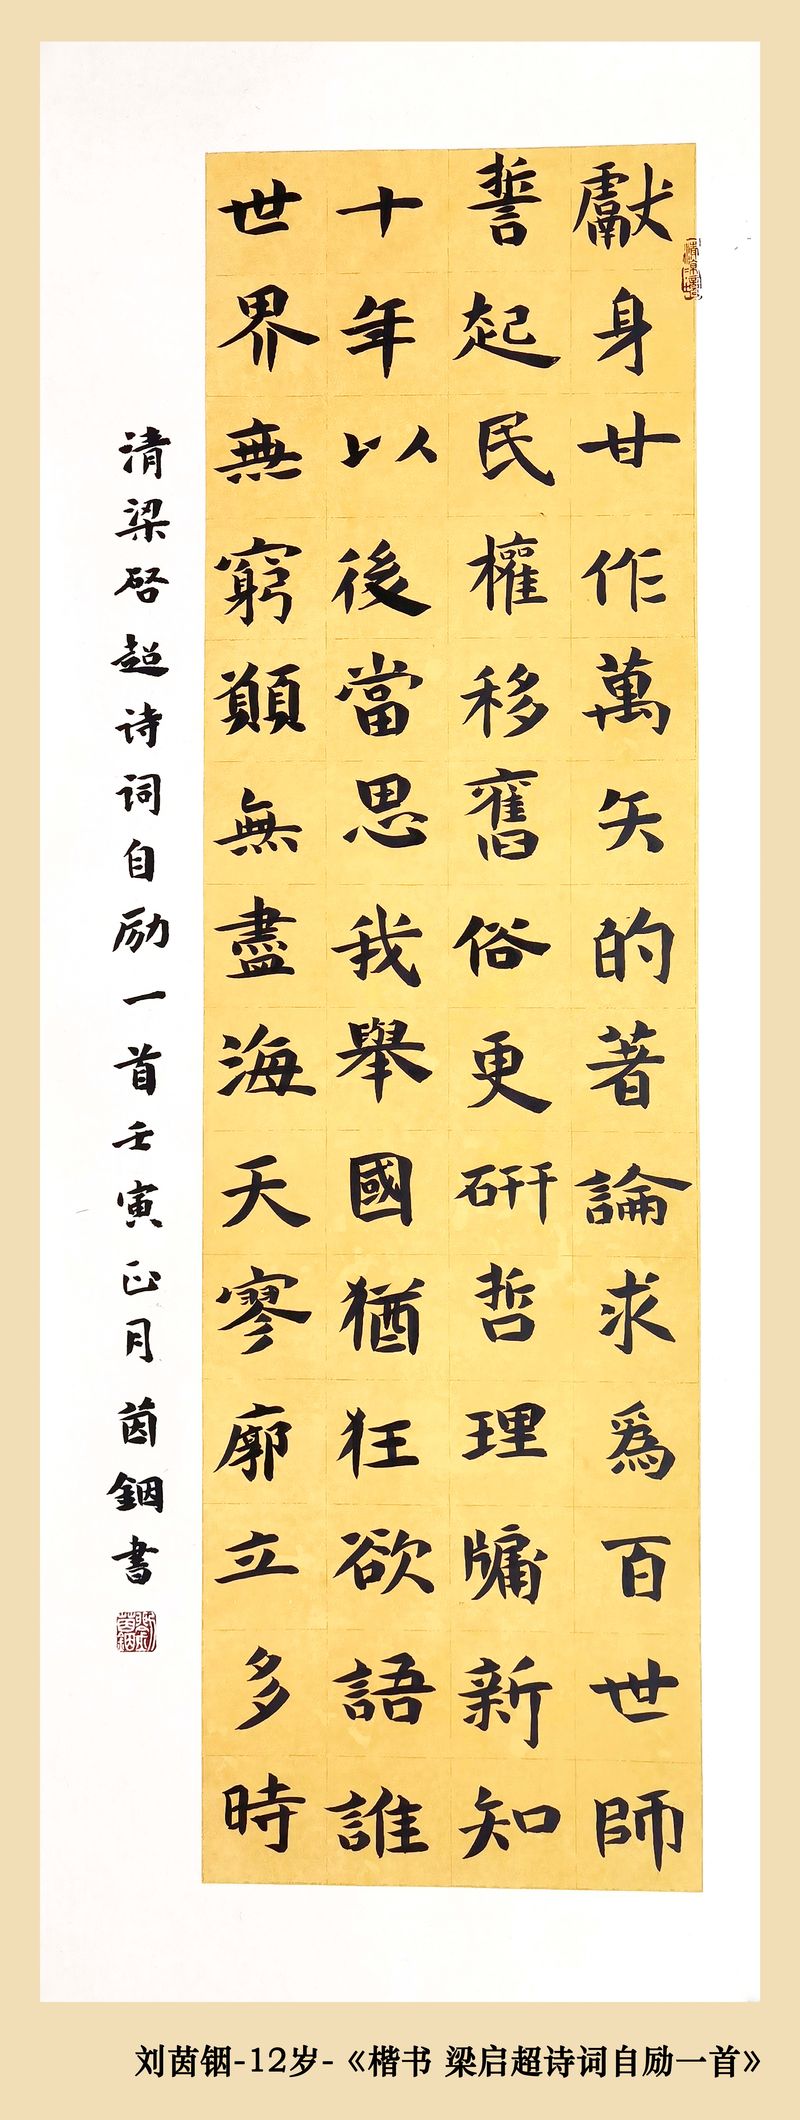 獻身甘作萬矢的著論求為百世師
誓起民權移舊俗更硏哲理牖新知
十年以後當思我舉國猶狂欲語誰
世界無窮願無盡海天寥廓立多時
清梁啓超诗词自励一首壬寅正月茵铟書
刘茵铟-12岁-《楷书 梁启超诗词自励一首》